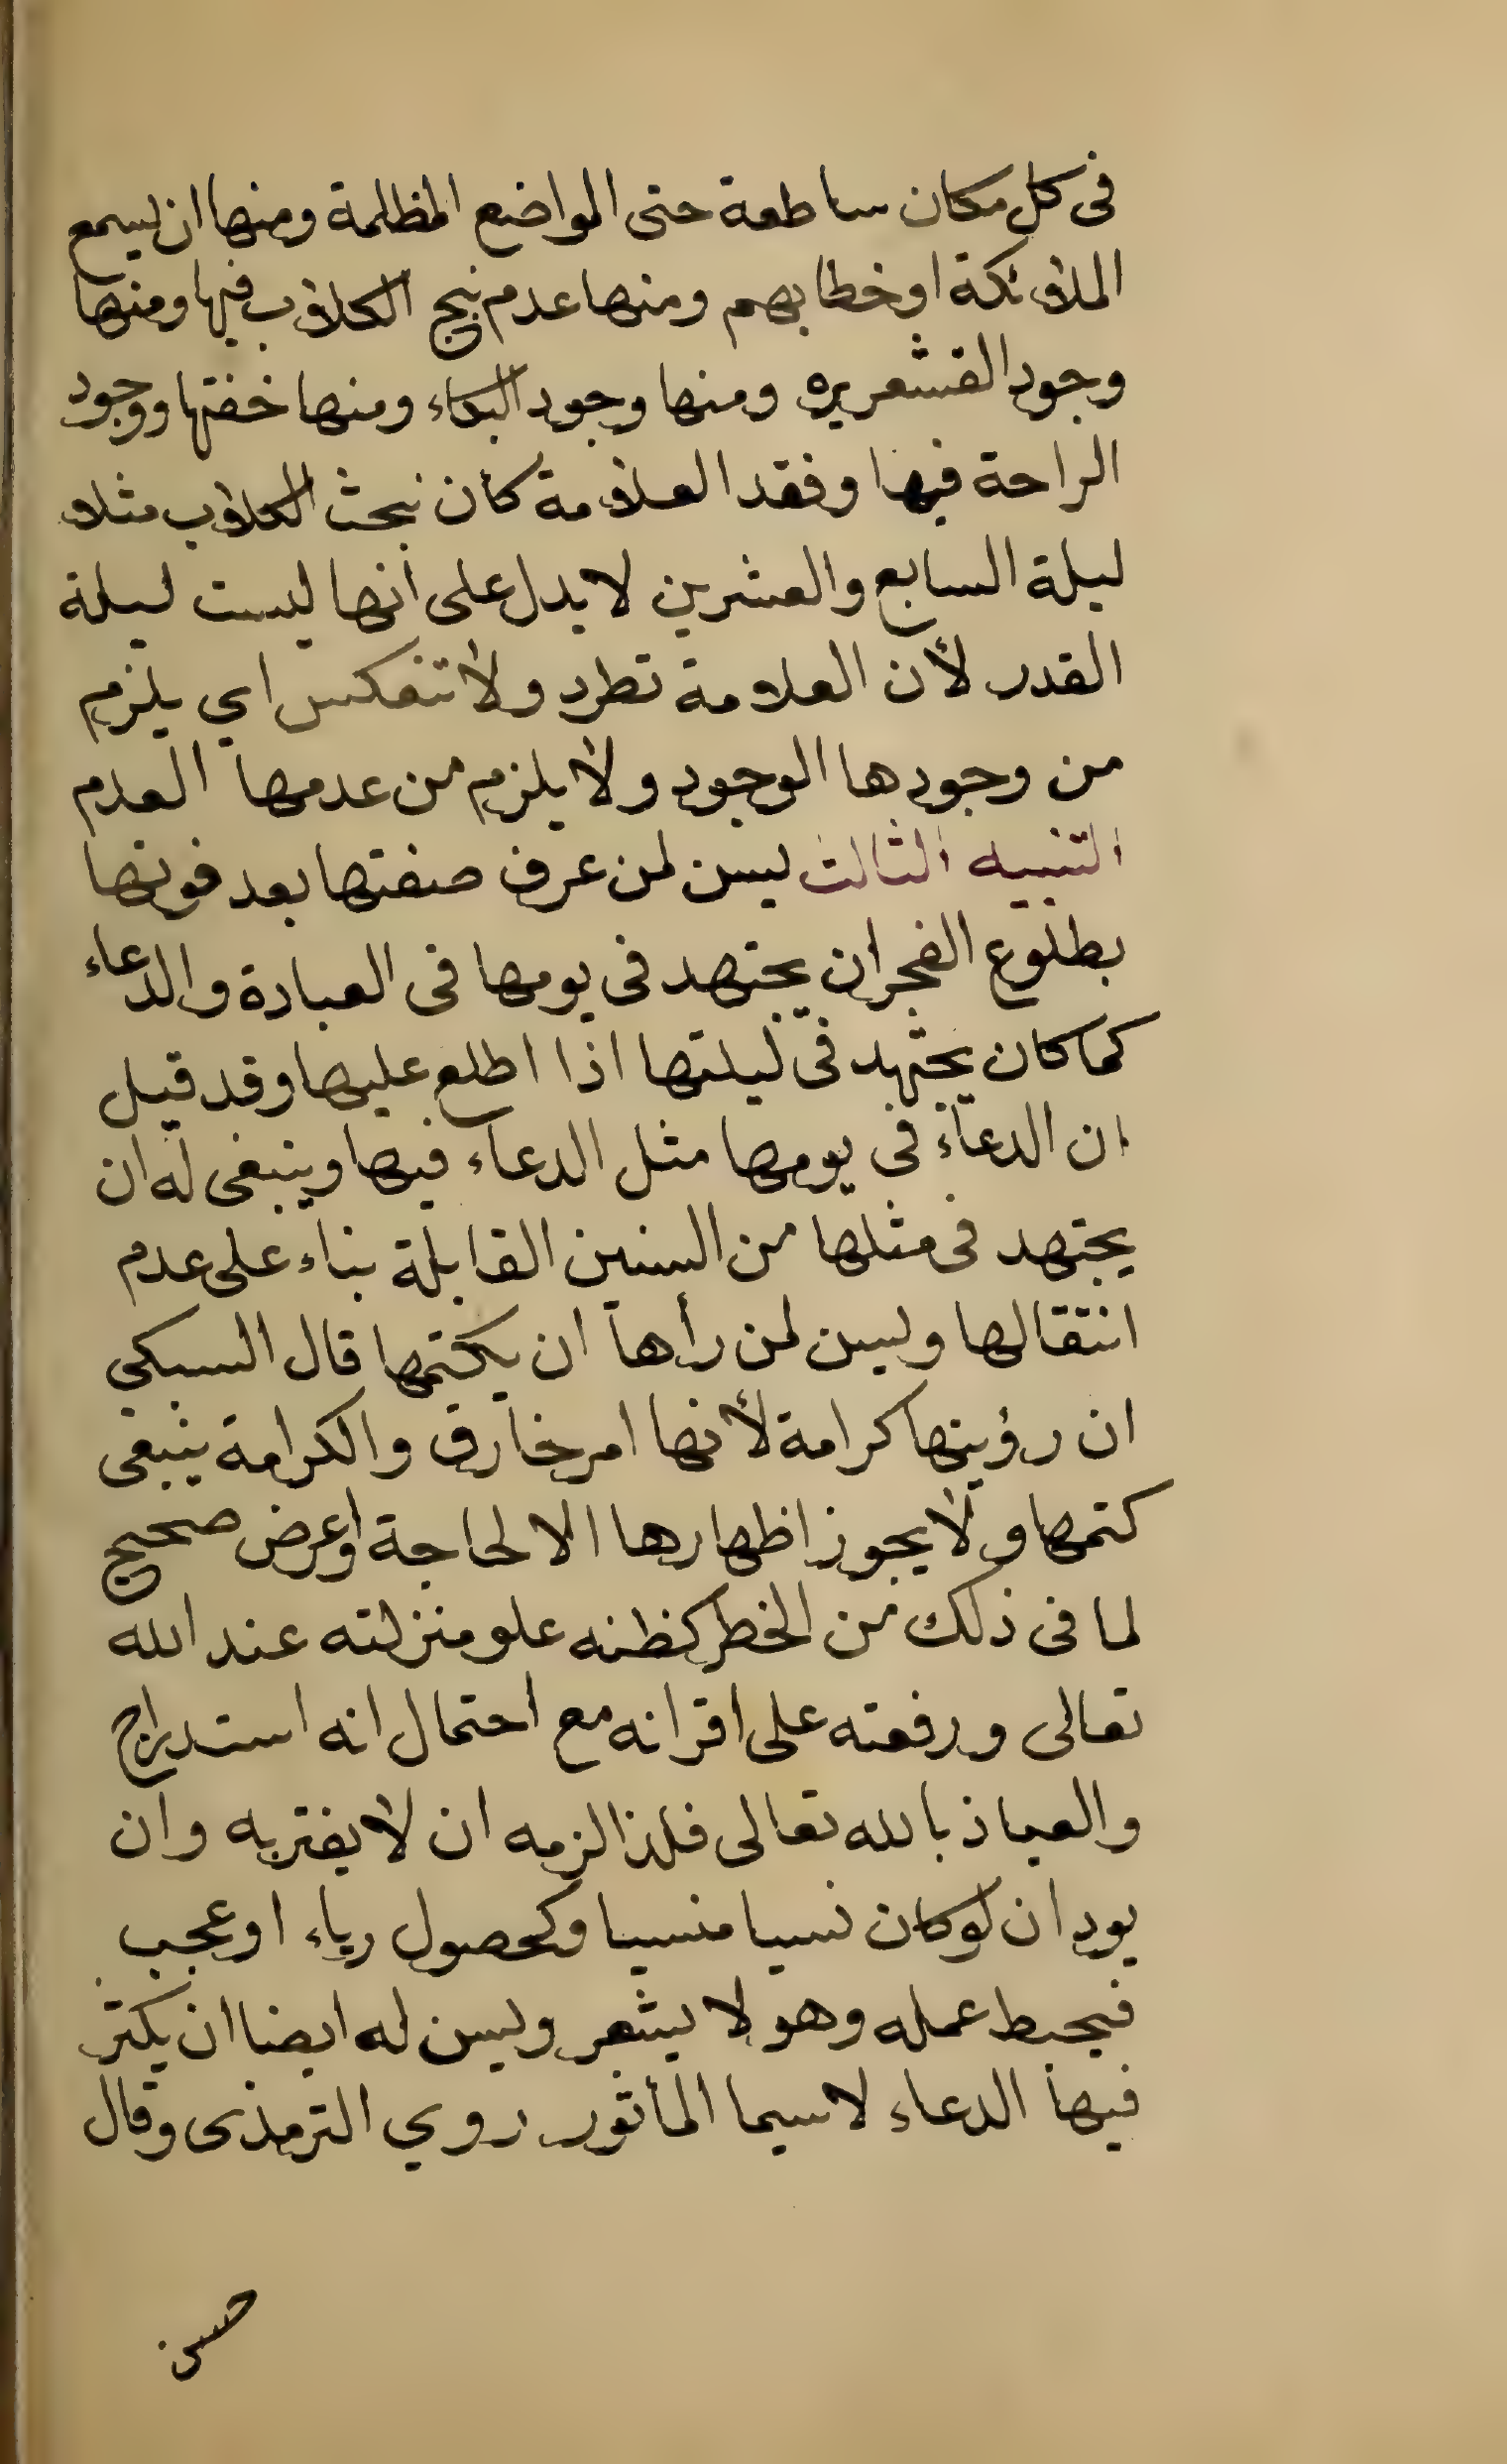 فى كل مكان ساطعة حتى المواضع المظلمة ومنها ان يسمع
الملائكة او خطابهم ومنها عدم نبح الكلاب فيها ومنها
وجود القشعريره ومنها وجود البكاء ومنها خفتها ووجود
الراحة فيها وفقد العلامة كأن نبحت الكلاب مثلا
ليلة السابع والعشرين لا يدل على أنها ليست ليلة
القدر لأن العلامة تطرد ولا تنعكس اي يلزم
من وجودها الوجود ولا يلزم من عدمها العدم
التنبيه الثالث يسن لمن عرف صفتها بعد فوتها
بطلوع الفجر ان يجتهد فى يومها فى العبادة والدعاء
كما كان يجتهد فى ليلتها اذا اطلع عليها وقد قيل
ان الدعاء فى يومها مثل الدعاء فيها وينبغى له ان
يجتهد فى مثلها من السنين القابلة بناء على عدم
انتقالها ويسن لمن رأها ان يكتمها قال السبكي
ان رؤيتها كرامة لأنها امر خارق والكرامة ينبغى
كتمها ولا يجوز اظهارها الا لحاجة او غرض صحيح
لما فى ذلك من الخطر كظنه علو منزلته عند الله
تعالى ورفعته على اقرانه مع احتمال انه استدراج
والعياذ بالله تعالى فلذا لزمه ان لا يغتر به وان
يود ان لو كان نسيا منسيا وكحصول رياء او عجب
فيحبط عمله وهو لا يشعر ويسن له ايضا ان يكثر
فيها الدعاء لاسيما المأثور روي الترمذى وقال
حسن